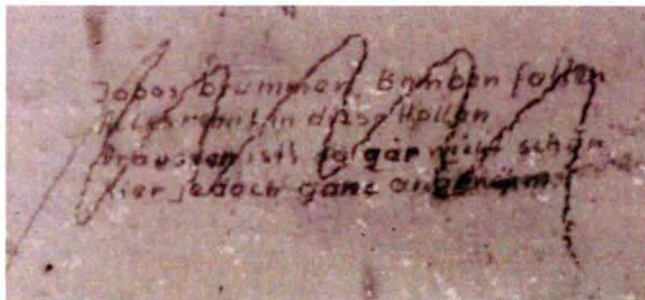 Jabos brummen, Bomben fallen
Alles rennt in diese Hallen
Draussen ists ja gar nicht schön
Hier jedoch ganz angenehm